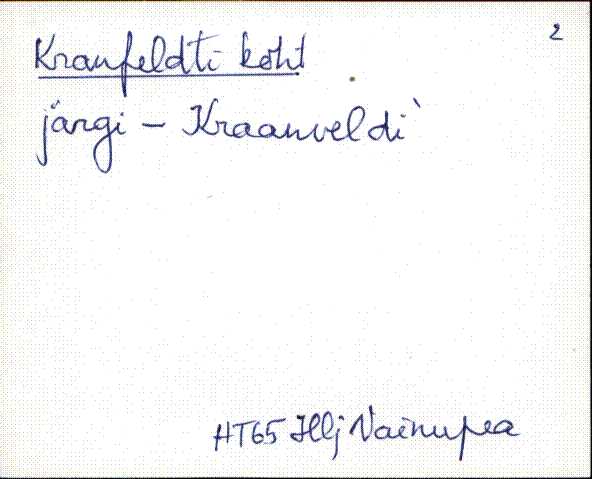 2
Kranfeldti koht
järgi – Kraanveldi`
HT65 Hlj Vainupea